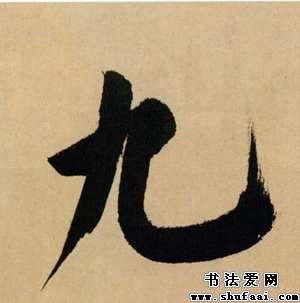 九
书法爱网
www.shufaai.com